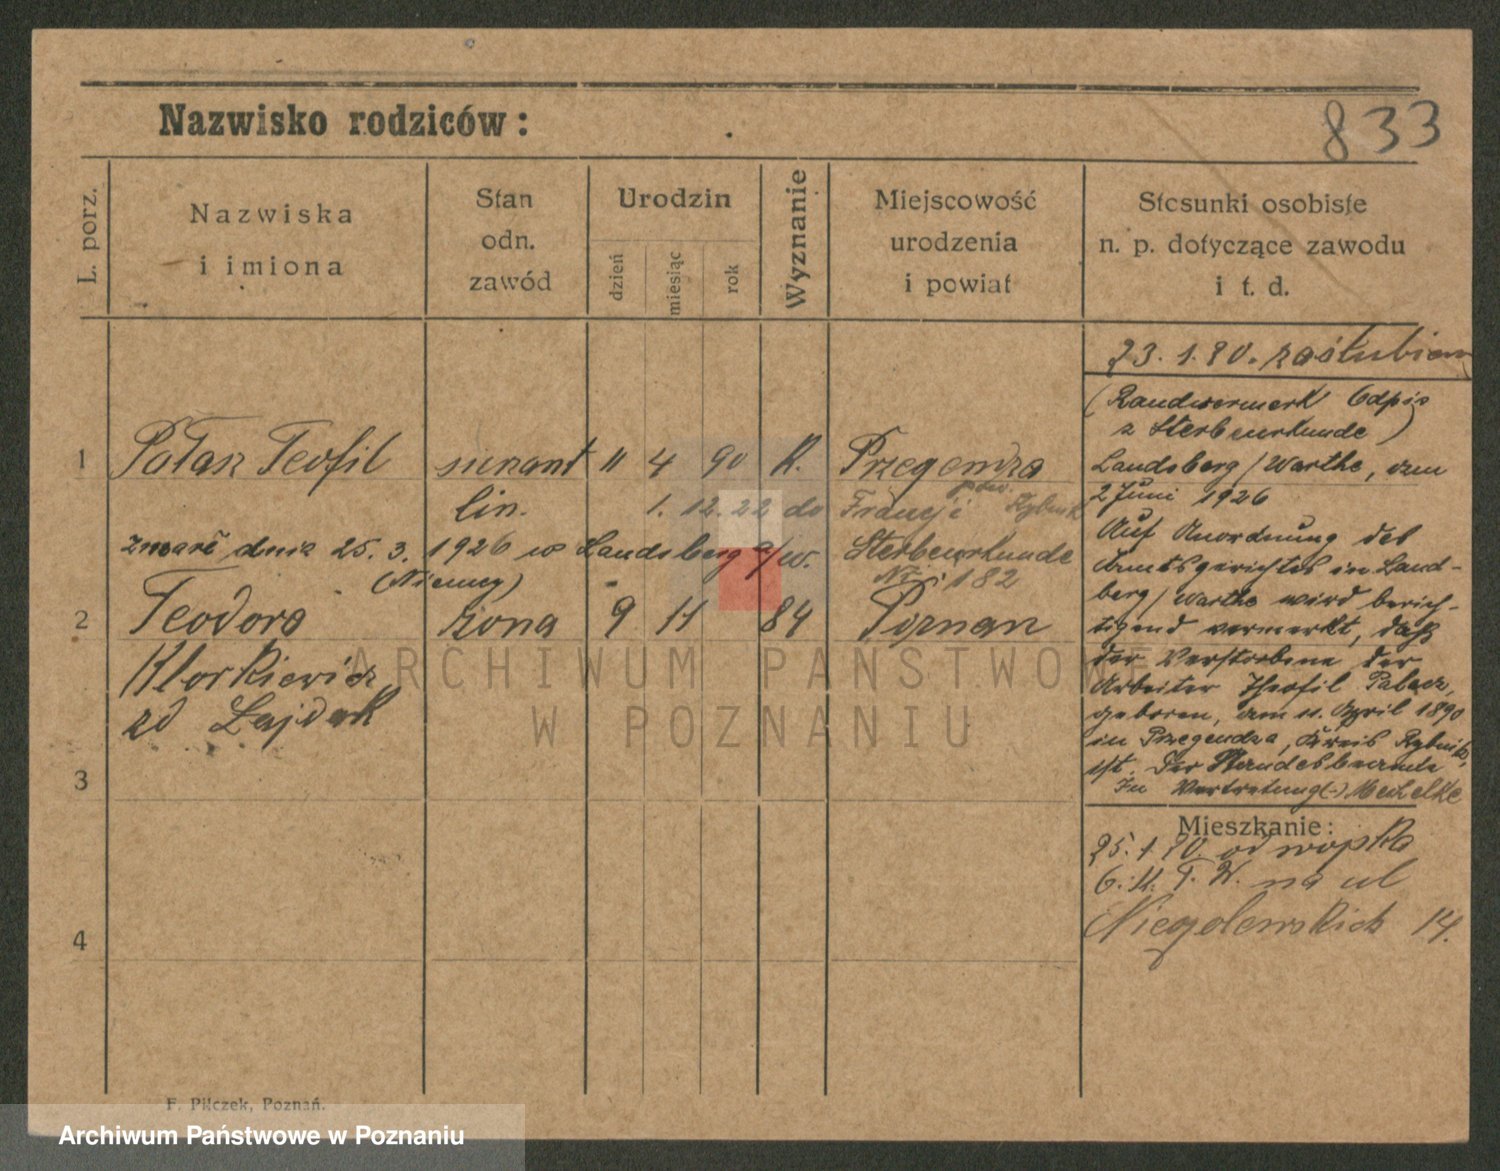 833
Nazwisko rodziców:
L. porz.
Nazwiska
i imiona
Stan
odn.
zawód
Urodzin
dzień
miesiąc
rok
Wyznanie
Miejscowość
urodzenia
i powiat
Stosunki osobiste
n. p. dotyczące zawodu
i t. d.
1 Pałasz Teofil 11 4 90 K. Przegendza
pow. Rybnik
lin. 1. 12. 22 do Francji
zmarł dnia 25. 3. 1926 w Landsberg a/w. Sterbeurkunde
(Niemcy) Nr. 182
2 Teodora żona 9 11 84 Poznań
zd
3
4
23. 1. 20. zaślubieni
(Randvermerk Odpis
z Sterbeurkunde)
Landsberg / Warthe, am
2 Juni 1926
Auf Anordnung des
Amtsgerichtes in Land-
berg / Warthe wird berich-
tigend vermerkt, daß
der Verstorbene der
Arbeiter Theofil Palacz,
geboren, am 11. April 1890
in Przegendza, Kreis Rybnik,
ist. Der Standesbeamte
In Vertretung (-)
Mieszkanie:
25. 1. 20 od wojska
na ul
Niegolewskich 14.
F. Pilczek, Poznań.
ARCHIWUM PAŃSTWOWE
W POZNANIU
Archiwum Państwowe w Poznaniu